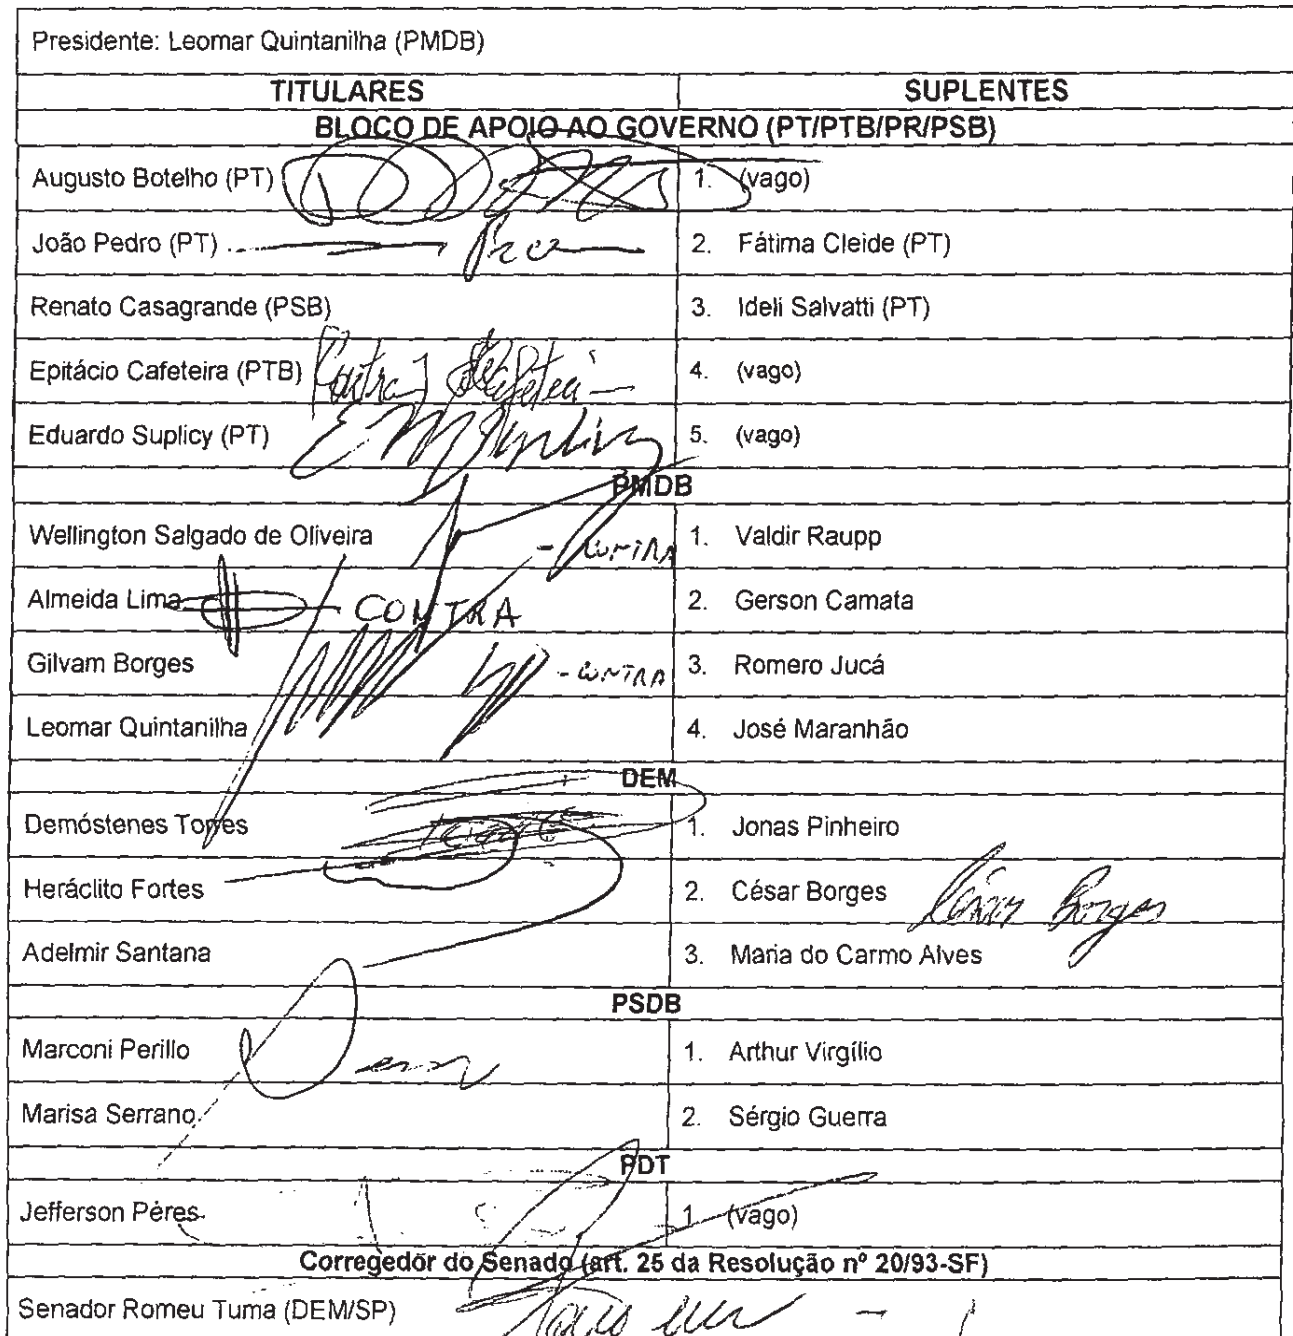 Presidente: Leomar Quintanilha (PMDB)
TITULARES SUPLENTES
BLOCO DE APOIO AO GOVERNO (PT/PTB/PR/PSB)
Augusto Botelho (PT) 1. (vago)
João Pedro (PT) 2. Fátima Cleide (PT)
Renato Casagrande (PSB) 3. Ideli Salvatti (PT)
Epitácio Cafeteira (PTB) Contra Cafeteira 4. (vago)
Eduardo Suplicy (PT) Suplicy 5. (vago)
PMDB
Wellington Salgado de Oliveira - CONTRA 1. Valdir Raupp
Almeida Lima CONTRA 2. Gerson Camata
Gilvam Borges - CONTRA 3. Romero Jucá
Leomar Quintanilha 4. José Maranhão
DEM
Demóstenes Torres 1. Jonas Pinheiro
Heráclito Fortes 2. César Borges César Borges
Adelmir Santana 3. Maria do Carmo Alves
PSDB
Marconi Perillo 1. Arthur Virgílio
Marisa Serrano 2. Sérgio Guerra
PDT
Jefferson Péres 1. (vago)
Corregedor do Senado (art. 25 da Resolução nº 20/93-SF)
Senador Romeu Tuma (DEM/SP)